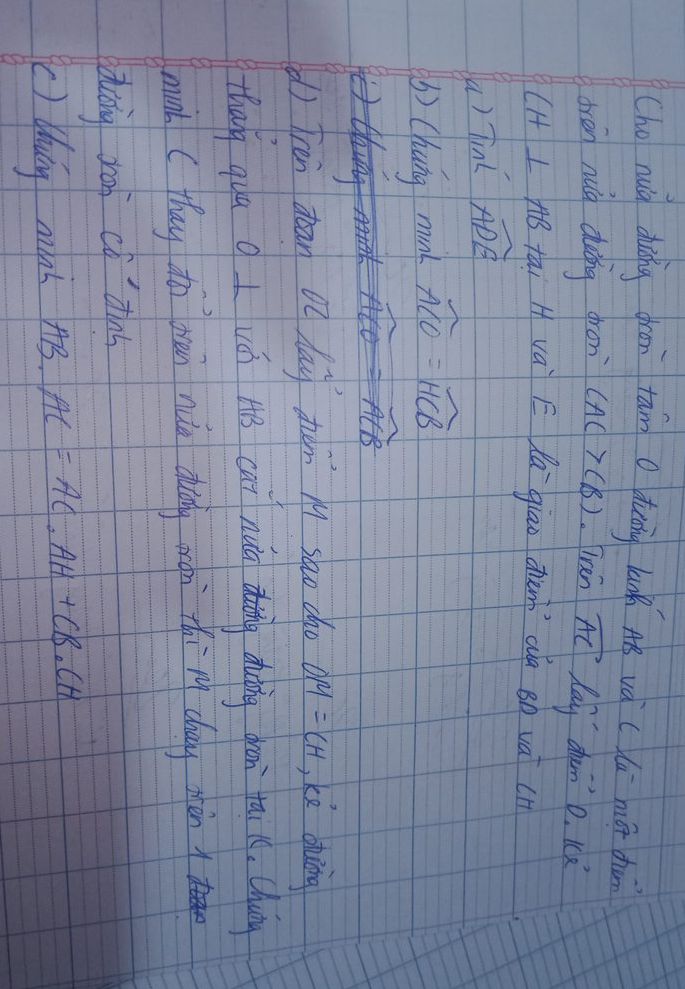 Cho nửa đường tròn tâm O đường kính AB và C là một điểm
trên nửa đường tròn (AC > CB). Trên AC lấy điểm D. Kẻ
CH ⊥ AB tại H và E là giao điểm của BD và CH
a) Tính ADE
b) Chứng minh ACO = HCB
c) Chứng minh ACO = HCB
d) Trên đoạn OC lấy điểm M sao cho OM = CH, kẻ đường
thẳng qua O ⊥ với AB cắt nửa đường đường tròn tại K. Chứng
minh C thay đổi trên nửa đường tròn thì M chạy trên 1
đường tròn cố định
c) Chứng minh AB. AC = AC. AH + CB. CH